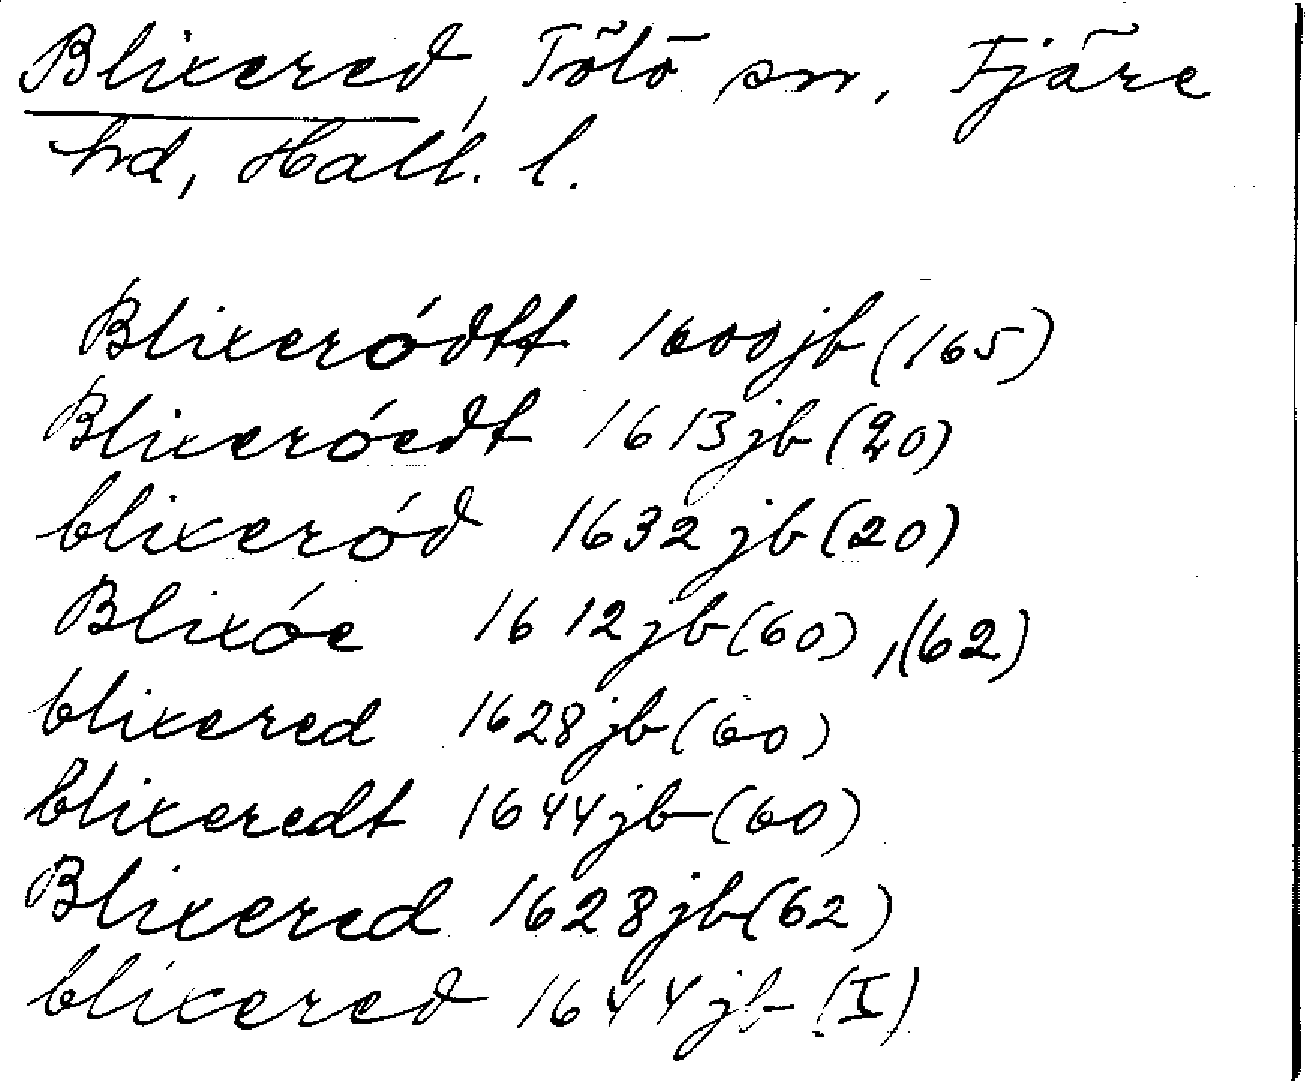 Blixered, Tölö sn, Fjäre
hd, Hall. l.
Blixeródtt 1600 jb (165)
Blixeróedt 1613 jb (20)
blixeród 1632 jb (20)
Blixóe 1612 jb (60), (62)
blixered 1628 jb (60)
blixeredt 1644 jb (60)
Blixered 1628 jb (62)
blixered 1644 jb (I)